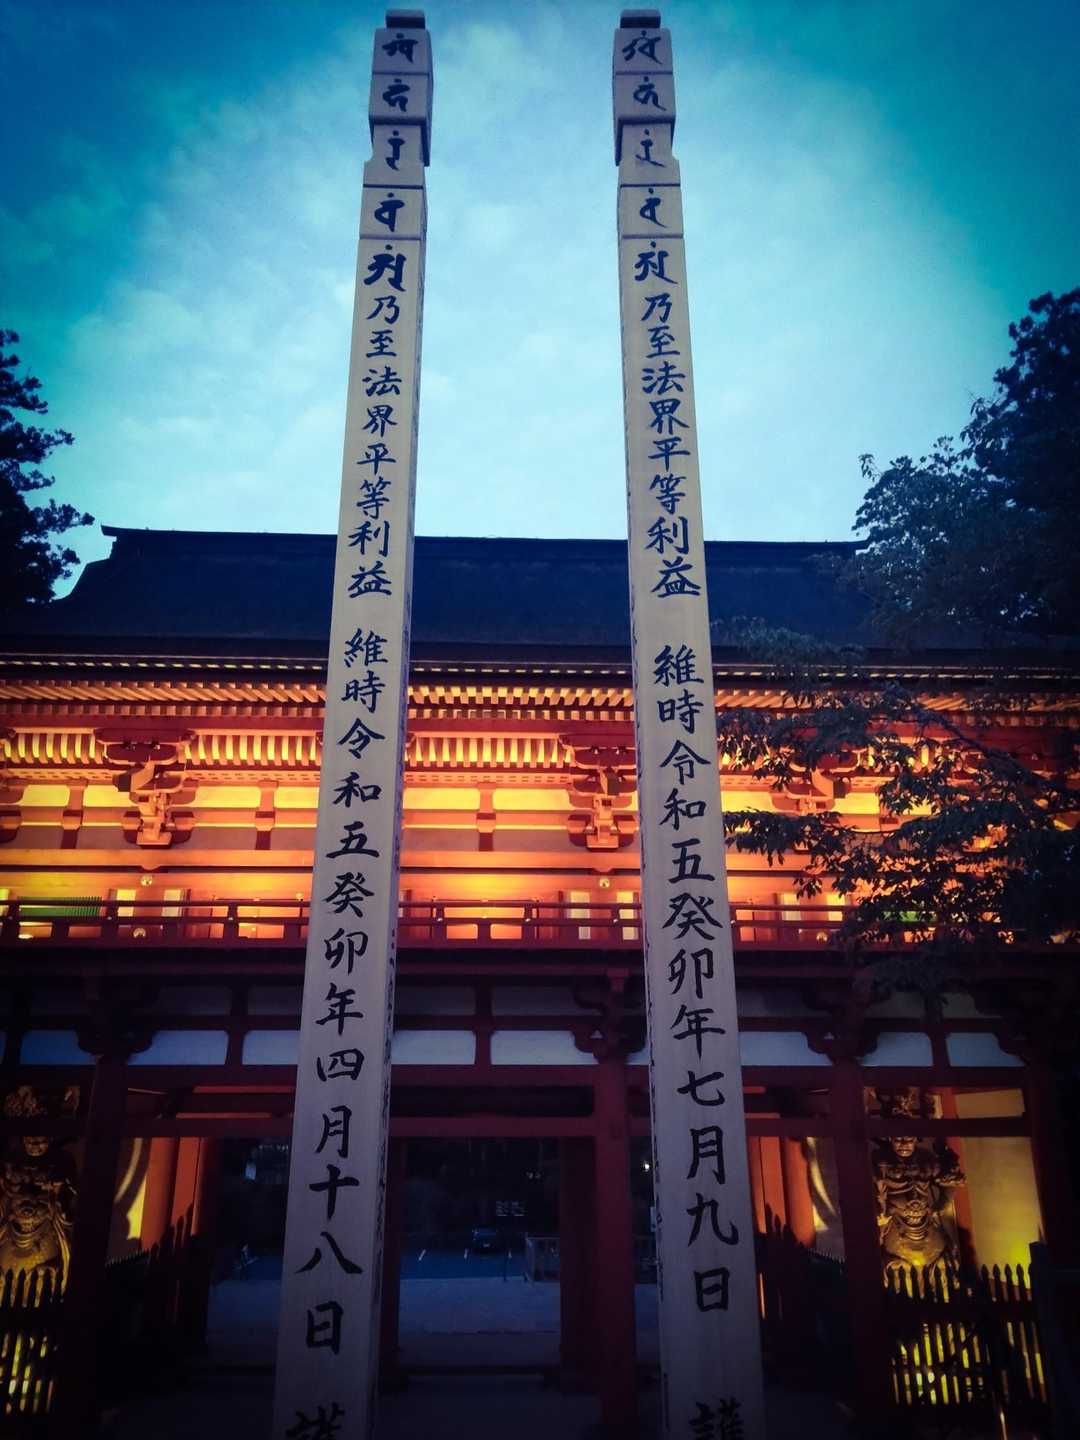 乃至法界平等利益　維時令和五癸卯年七月九日
乃至法界平等利益　維時令和五癸卯年四月十八日